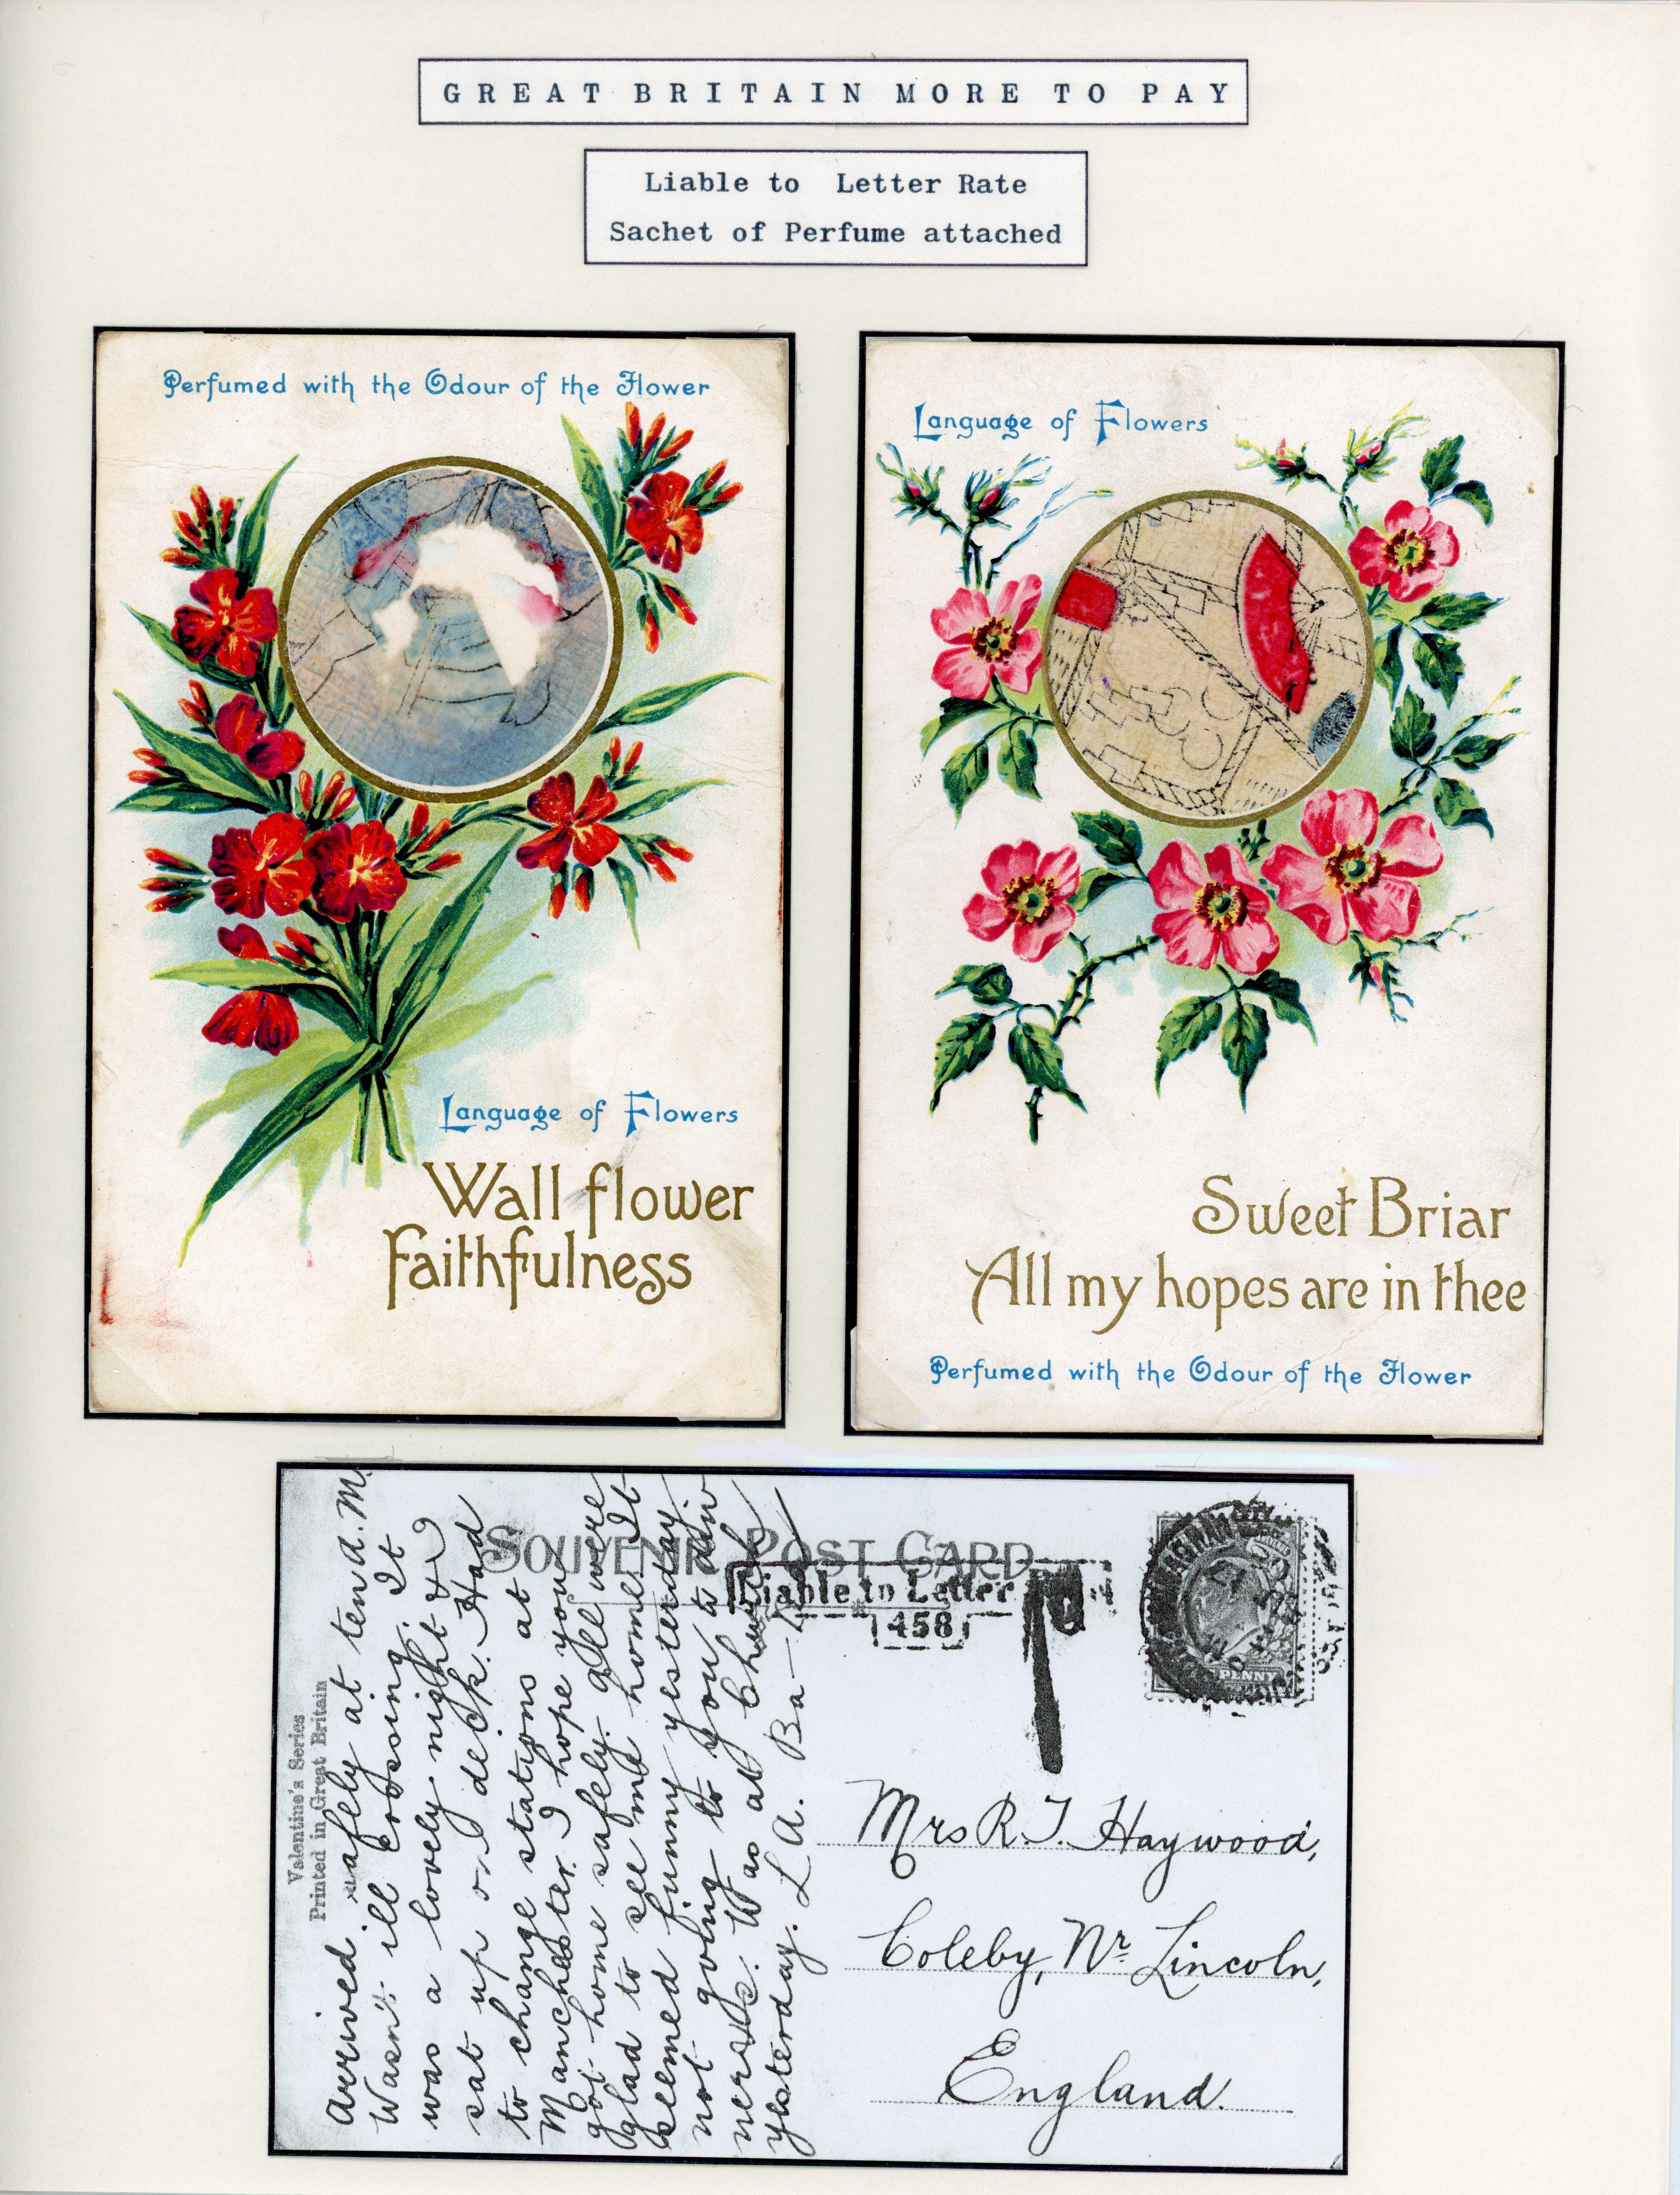 GREAT BRITAIN MORE TO PAY
Liable to Letter Rate
Sachet of Perfume attached
Perfumed with the Odour of the Flower
Language of Flowers
Wall flower
Faithfulness
Language of Flowers
Sweet Briar
All my hopes are in thee
Perfumed with the Odour of the Flower
Valentine's Series
Printed in Great Britain
Arrived safely at ten A.M.
Wasn't ill crossing. It
was a lovely night &
sat up on deck. Had
to change stations at
Manchester. I hope you
got home safely. All were
glad to see me home. It
seemed funny yesterday
not going to you to
Was at Church
yesterday. L. A.
SOUVENIR POST CARD
Liable to Letter
458
PENNY
Mrs R. T. Haywood,
Coleby, Nr Lincoln,
England.